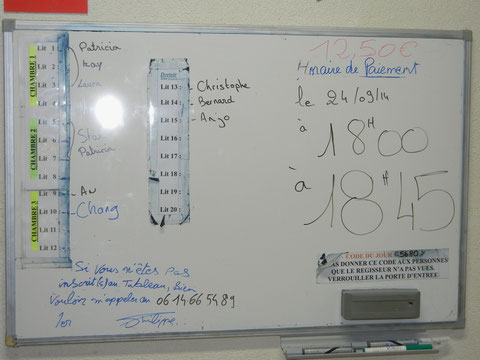 12,50€
Horaire de Paiement
le 24/09/14
à
18H00
à
18H45
CHAMBRE 1
Lit 1 : Patricia
Lit 2 : Kay
Lit 3 : Laura
Lit 4 :
CHAMBRE 2
Lit 5 : Stan
Lit 6 : Patricia
Lit 7 :
Lit 8 :
CHAMBRE 3
Lit 9 : An
Lit 10 : Chang
Lit 11 :
Lit 12 :
Lit 13 : Christophe
Lit 14 : Bernard
Lit 15 : Anjo
Lit 16 :
Lit 17 :
Lit 18 :
Lit 19 :
Lit 20 :
CODE DU JOUR
PAS DONNER CE CODE AUX PERSONNES
QUE LE REGISSEUR N'A PAS VUES.
VERROUILLER LA PORTE D'ENTREE
Si vous n'êtes pas
inscrit(s) au Tableau, Bien
Vouloir m'appeler au 06 14 66 54 89